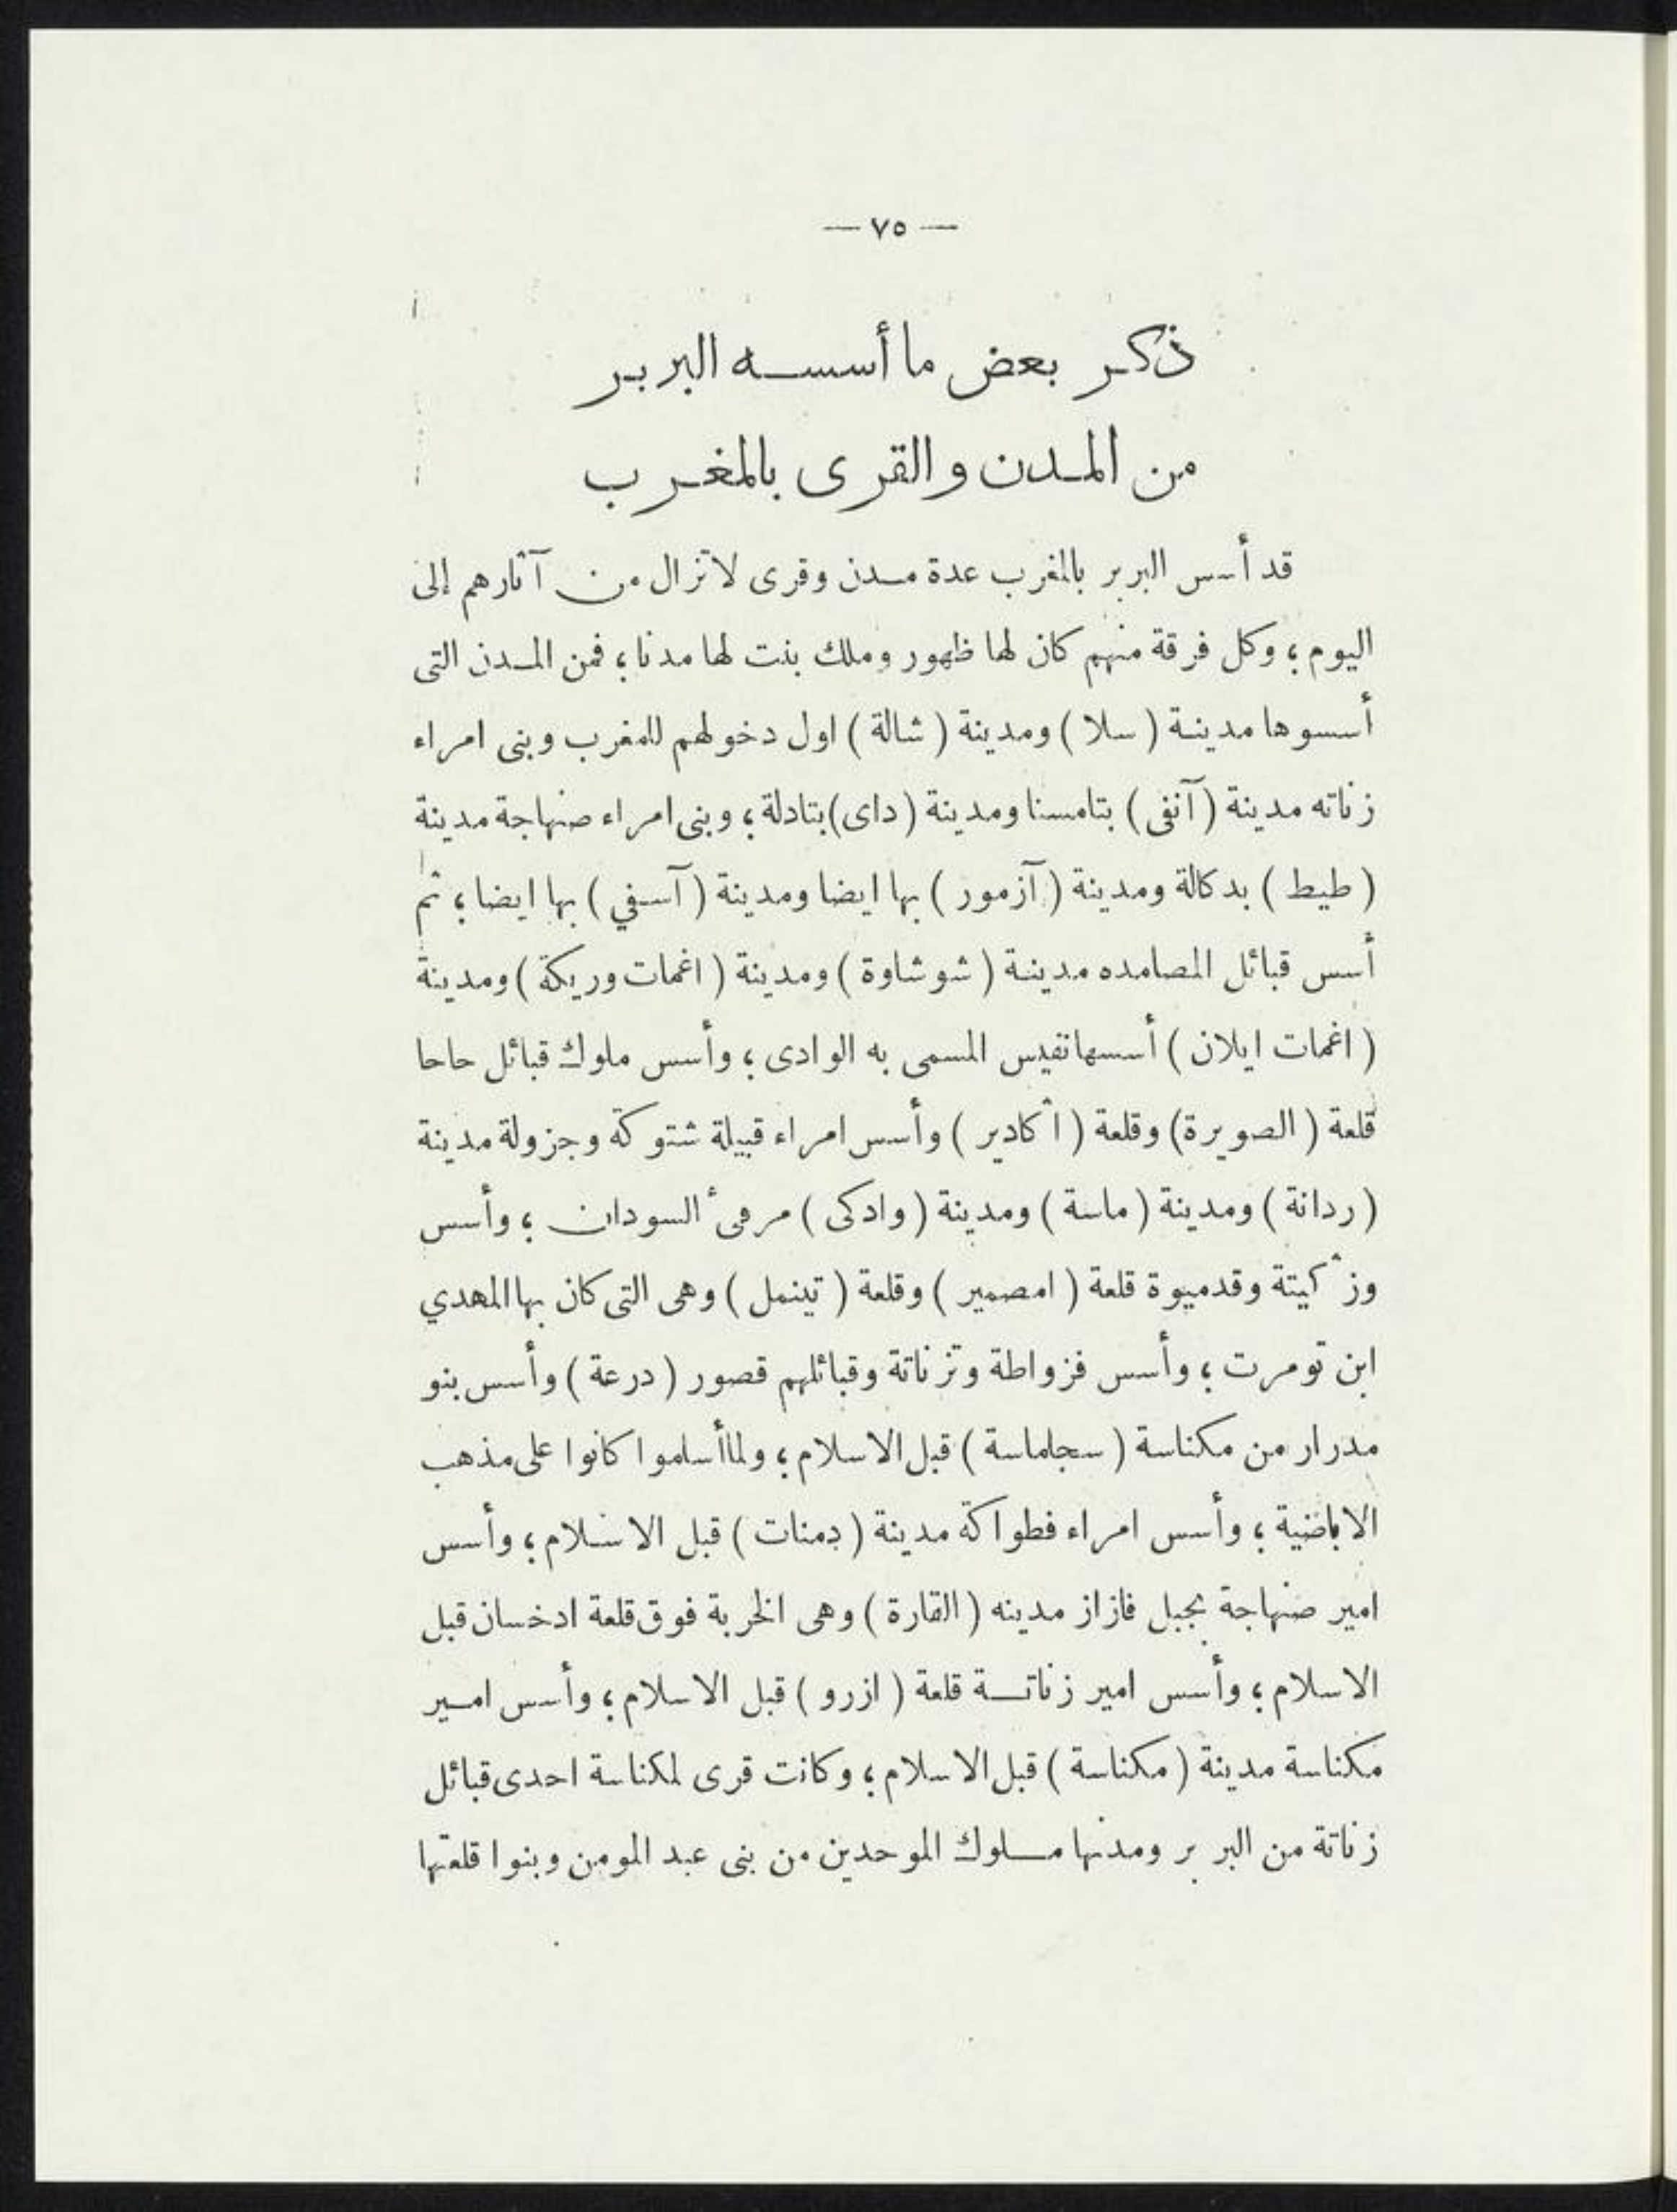 — ٧٥ —
ذكر بعض ما أسسه البربر
من المدن والقرى بالمغرب
قد أسس البربر بالمغرب عدة مدن وقرى لاتزال من آثارهم إلى
اليوم ؛ وكل فرقة منهم كان لها ظهور وملك بنت لها مدنا ؛ فمن المدن التى
أسسوها مدينة ( سلا ) ومدينة ( شالة ) اول دخولهم للمغرب وبنى امراء
زناته مدينة ( آنفى ) بتامسنا ومدينة ( داى ) بتادلة ؛ وبنى امراء صنهاجة مدينة
( طيط ) بدكالة ومدينة ( آزمور ) بها ايضا ومدينة ( آسفي ) بها ايضا ؛ ثم
أسس قبائل المصامده مدينة ( شوشاوة ) ومدينة ( اغمات وريكة ) ومدينة
( اغمات ايلان ) أسسها نفيس المسمى به الوادى ؛ وأسس ملوك قبائل حاحا
قلعة ( الصويرة ) وقلعة ( اكادير ) وأسس امراء قبيلة شتوكة وجزولة مدينة
( ردانة ) ومدينة ( ماسة ) ومدينة ( وادكى ) مرفىء السودان ؛ وأسس
وزكيتة وقدميوة قلعة ( امصمير ) وقلعة ( تينمل ) وهى التى كان بها المهدي
ابن تومرت ؛ وأسس فزواطة وتزناتة وقبائلهم قصور ( درعة ) وأسس بنو
مدرار من مكناسة ( سجلماسة ) قبل الاسلام ؛ ولما أسلموا كانوا على مذهب
الاباضية ؛ وأسس امراء فطواكة مدينة ( دمنات ) قبل الاسلام ؛ وأسس
امير صنهاجة بجبل فازاز مدينه ( القارة ) وهى الخربة فوق قلعة ادخسان قبل
الاسلام ؛ وأسس امير زناتة قلعة ( ازرو ) قبل الاسلام ؛ وأسس امير
مكناسة مدينة ( مكناسة ) قبل الاسلام ؛ وكانت قرى لمكناسة احدى قبائل
زناتة من البربر ومدنها ملوك الموحدين من بنى عبد المومن وبنوا قلعتها